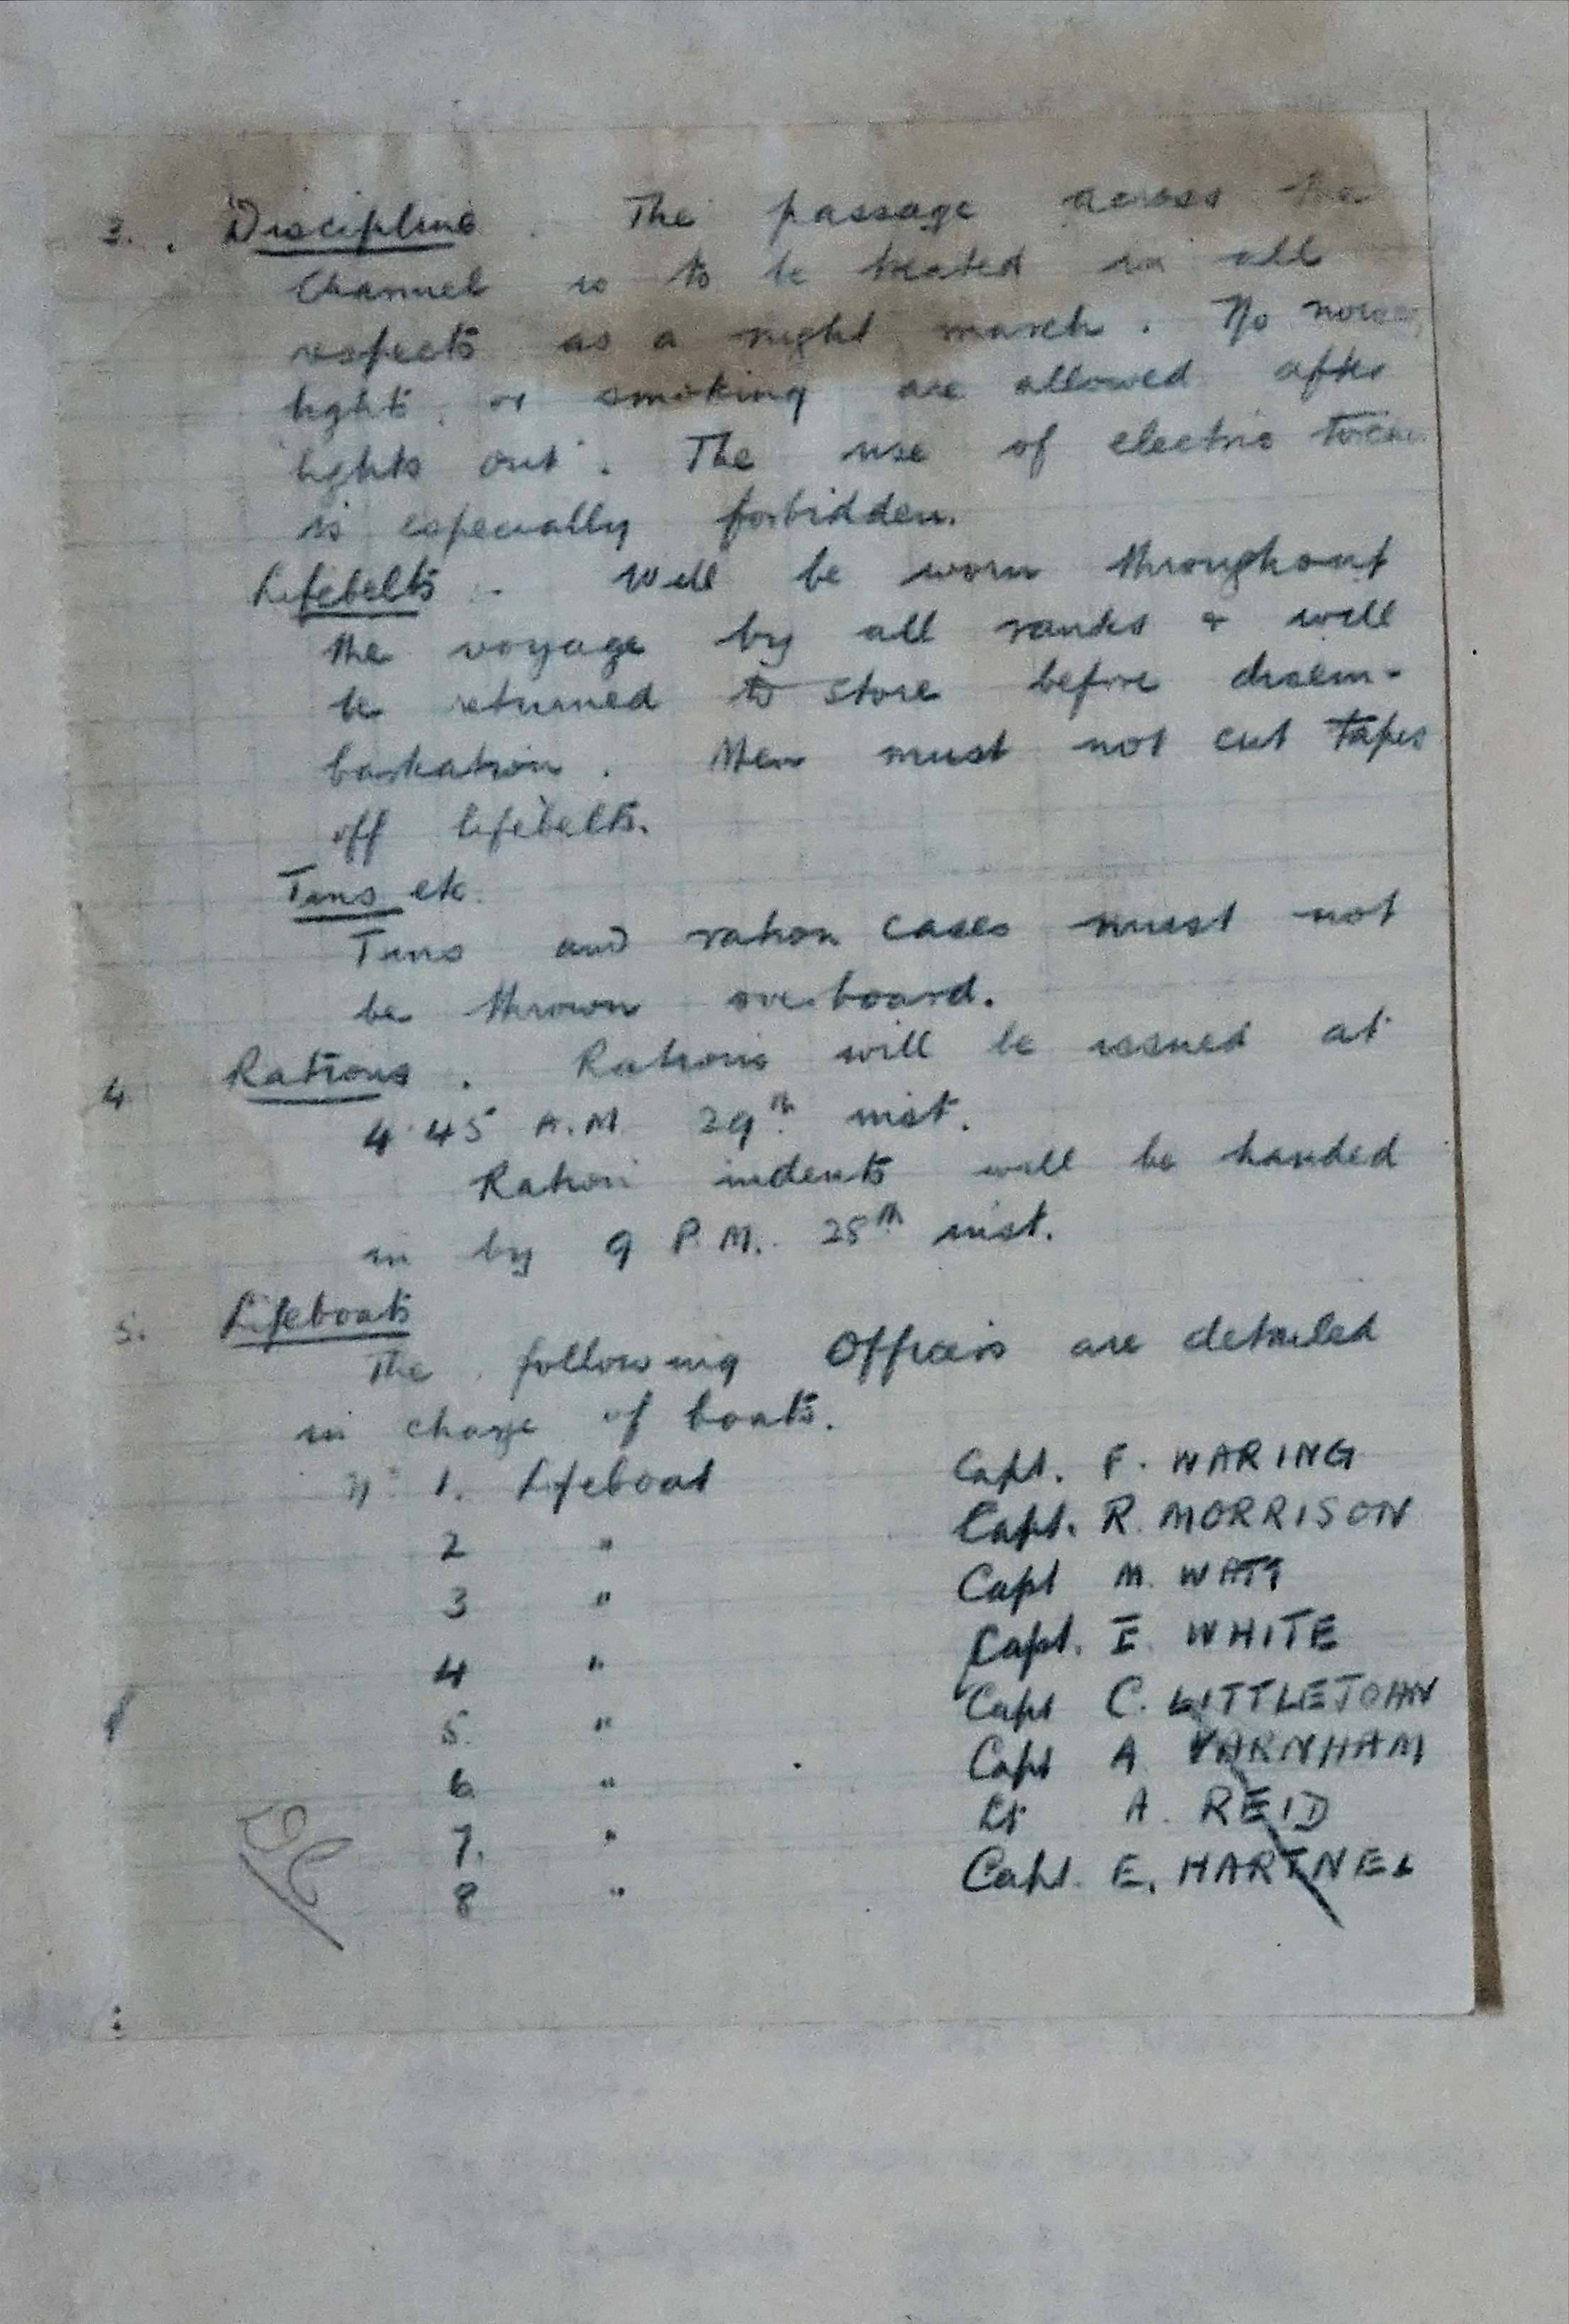 3. Discipline. The passage across the
Channel is to be treated in all
respects as a night march. No noise
lights, or smoking are allowed after
"lights out". The use of electric
is especially forbidden.
Lifebelts - Will be worn throughout
the voyage by all ranks & will
be returned to store before disem-
barkation. Men must not cut tapes
off lifebelts.
Tins etc.
Tins and ration cases must not
be thrown overboard.
4. Rations. Rations will be issued at
4.45 A.M. 29th inst.
Ration indents will be handed
in by 9 P.M. 28th inst.
5. Lifeboats
The following Officers are detailed
in charge of boats.
No 1. Lifeboat Capt. F. WARING
2 " Capt. R. MORRISON
3 " Capt M. WATT
4 " Capt. E. WHITE
5. " Capt C. LITTLEJOHN
6 " Capt A. VARNHAM
7. " Lt A. REID
8 " Capt. E. HARTNEL